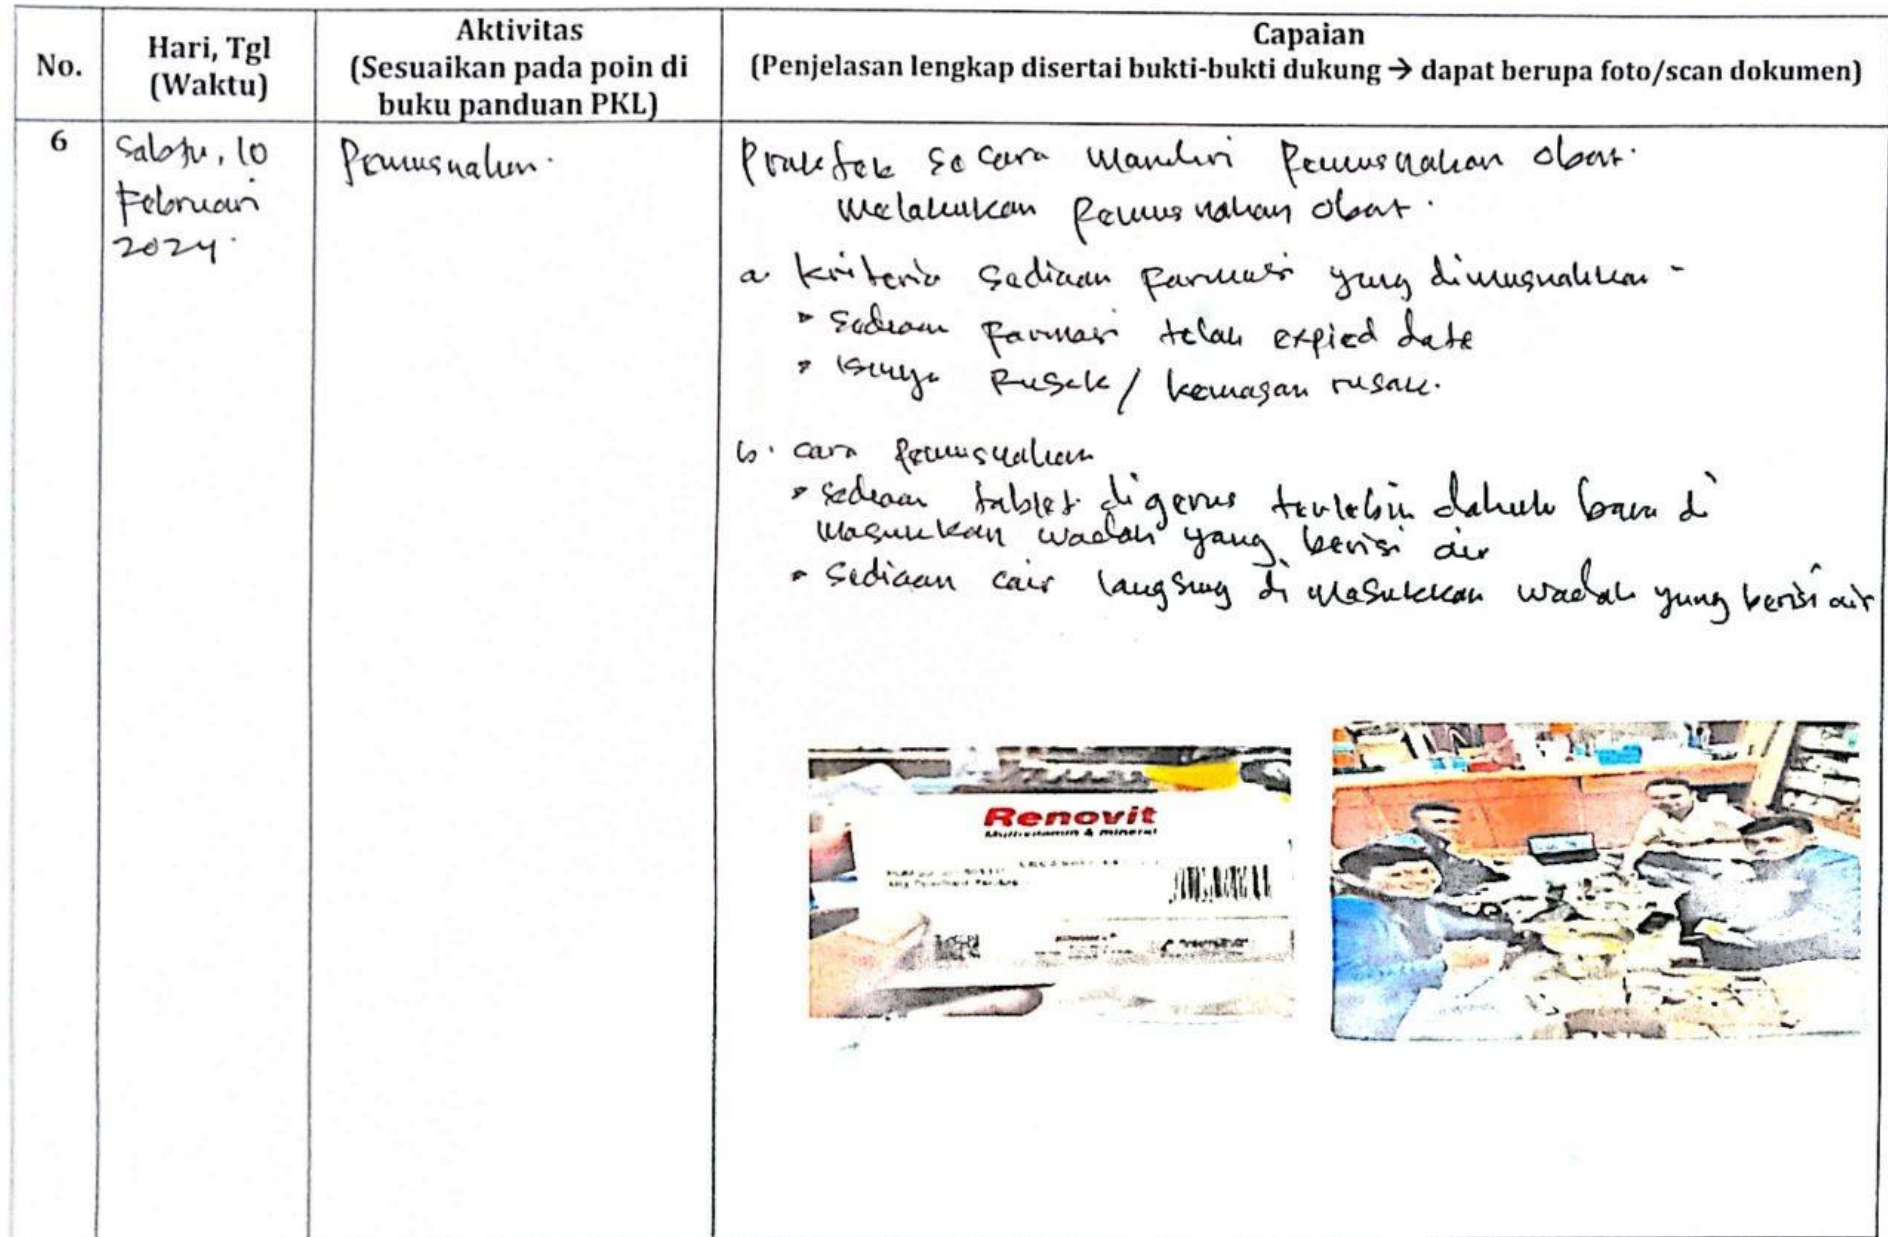 No.
Hari, Tgl
(Waktu)
Aktivitas
(Sesuaikan pada poin di
buku panduan PKL)
Capaian
(Penjelasan lengkap disertai bukti-bukti dukung → dapat berupa foto/scan dokumen)
6
Sabtu, 10
Februari
2024.
Pemusnahan.
Praktek secara mandiri Pemusnahan obat.
melakukan Pemusnahan obat.
a. kriteria sediaan farmasi yang dimusnahkan -
• sediaan farmasi telah expied date
• isinya Rusak / kemasan rusak.
b. cara Pemusnahan
• sediaan tablet digerus terlebih dahulu baru di
masukkan wadah yang berisi air
• Sediaan cair langsung di masukkan wadah yang berisi air
Renovit
Multivitamin & mineral